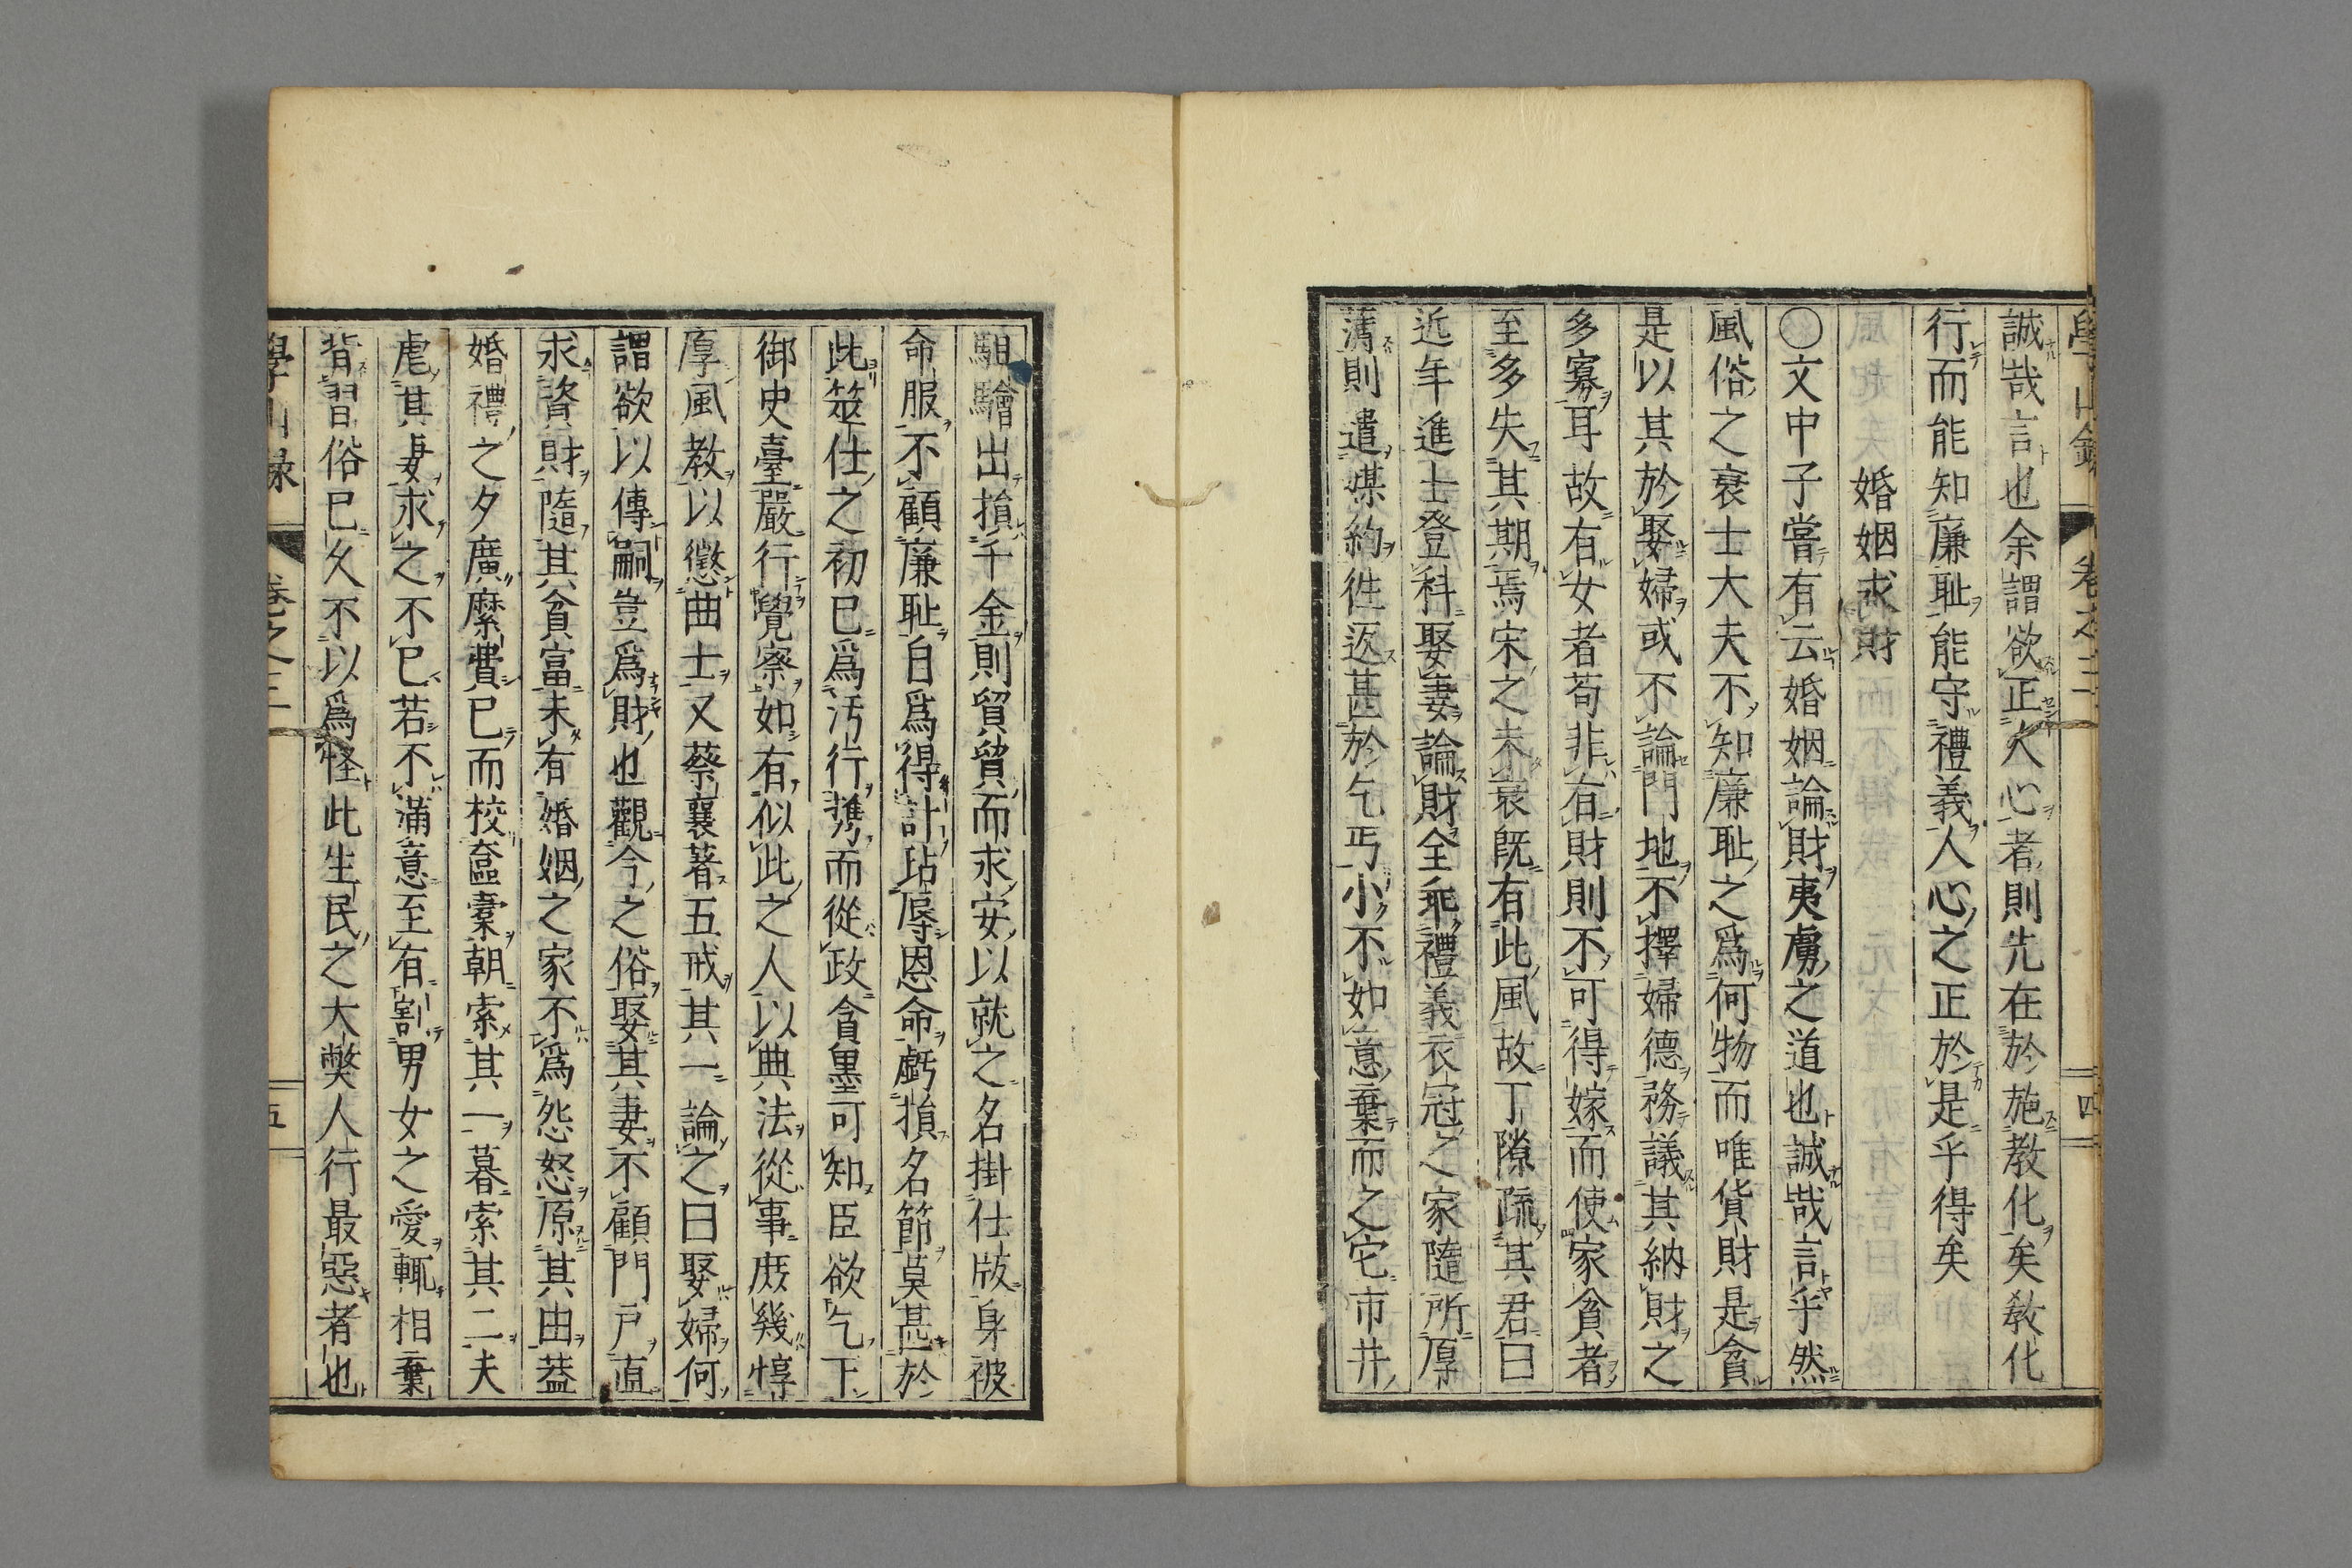 誠哉言也余謂欲正人心者則先在於施教化矣教化
行而能知廉耻能守禮義人心之正於是乎得矣
婚姻求財
〇文中子嘗有云婚姻論財夷虜之道也誠哉言乎然
風俗之衰士大夫不知廉耻之爲何物而唯貨財是貪
是以其於娶婦或不論門地不擇婦德務議其納財之
多寡耳故有女者苟非有財則不可得嫁而使家貧者
至多失其期焉宋之未衰既有此風故丁隲疏其君曰
近年進士登科娶妻論財全乖禮義衣冠之家隨所厚
薄則遣媒約徃返甚於乞丐小不如意棄而之它市井
駔驓出損千金則貿貿而求安以就之名掛仕版身被
命服不顧廉耻自爲得計玷辱恩命虧損名節莫甚於
此筮仕之初已爲汚行携而從政貪墨可知臣欲乞下
御史臺嚴行覺察如有似此之人以典法從事庶幾惇
厚風教以懲曲士又蔡襄著五戒其一論之曰娶婦何
謂欲以傳嗣豈爲財也觀今之俗娶其妻不顧門戸直
求資財隨其貧富未有婚姻之家不爲怨怒原其由葢
婚禮之夕廣糜費已而校奩橐朝索其一暮索其二夫
虐其妻求之不已若不滿意至有割男女之愛輒相棄
背習俗已久不以爲怪此生民之大弊人行最惡者也
學山録 卷之二 四
學山録 卷之二 五